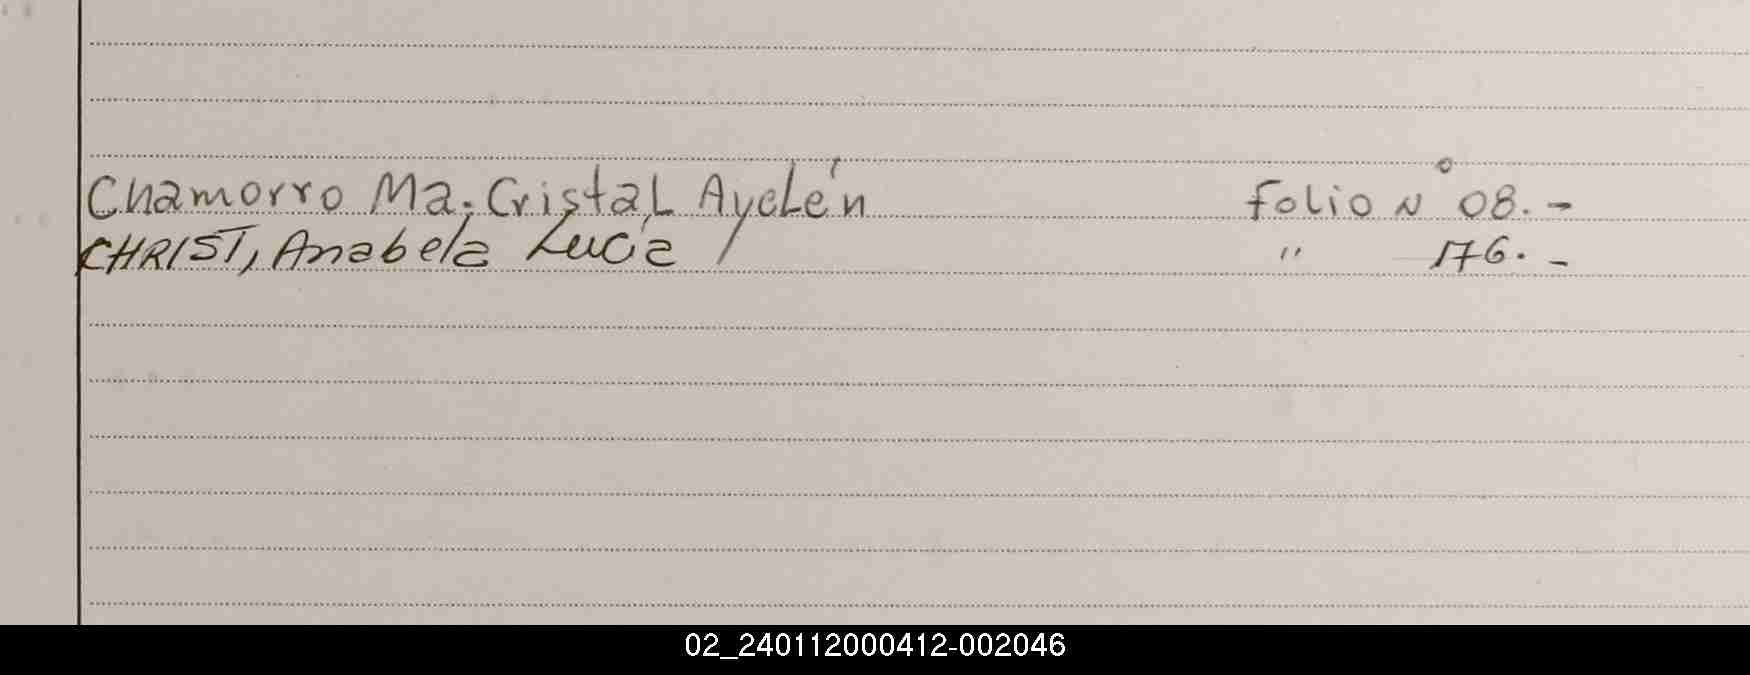 Chamorro Ma. Cristal Ayelén Folio N° 08.-
CHRIST, Anabela Lucía " 176.-
02_240112000412-002046